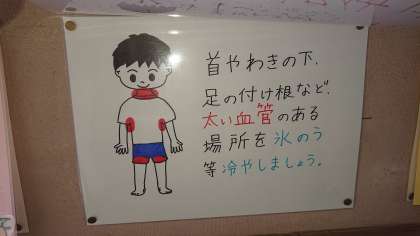 首やわきの下、
足の付け根など、
太い血管のある
場所を氷のう
等冷やしましょう。